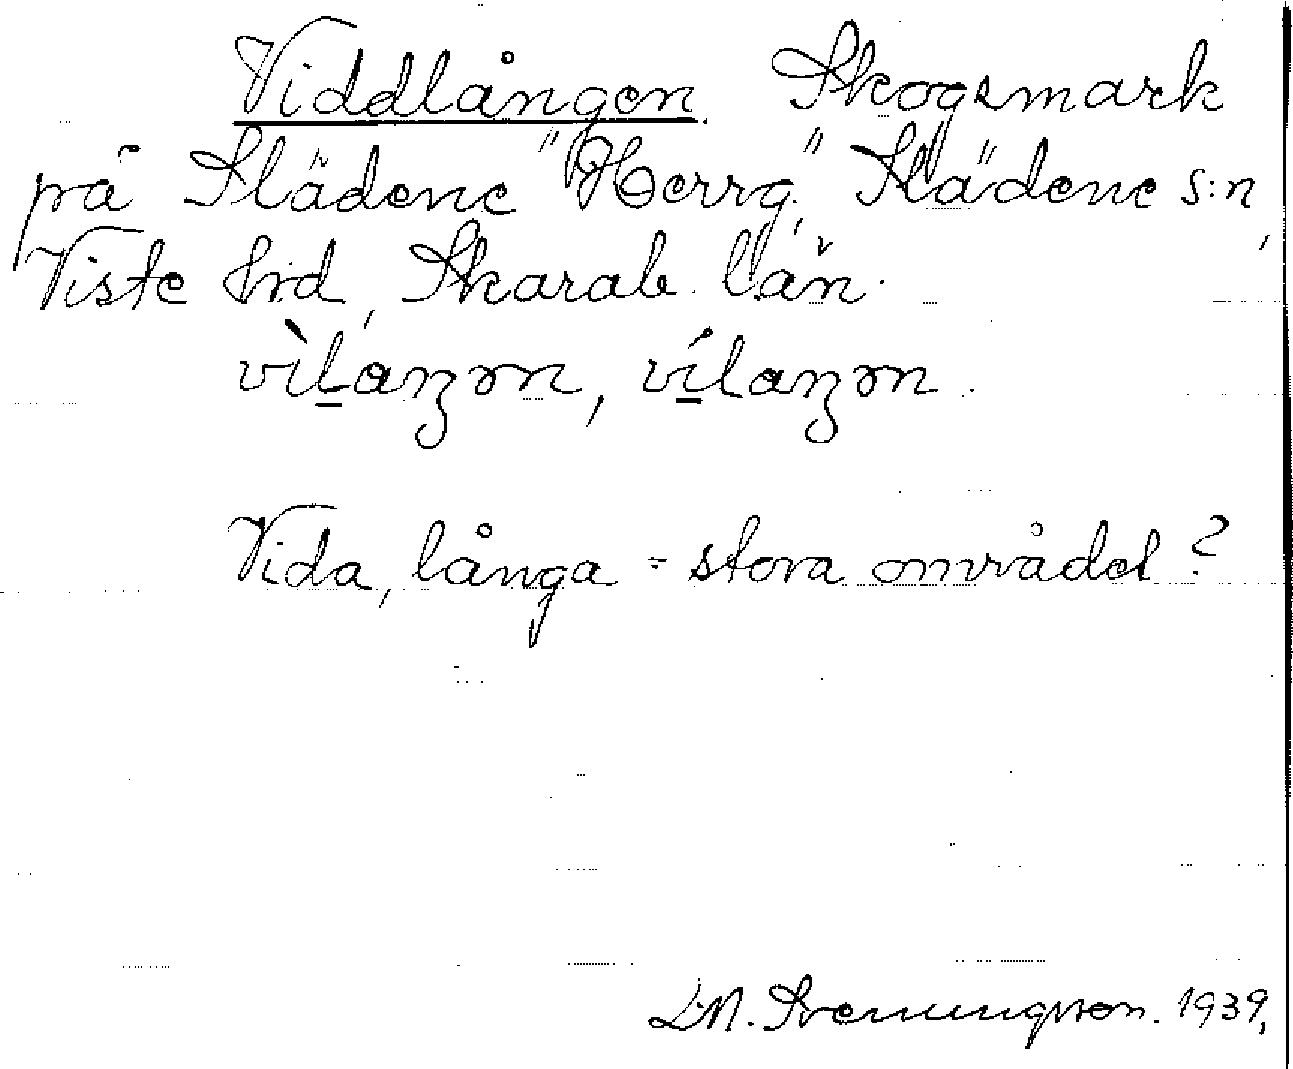 Viddlången. Skogsmark
på Slädene "Herrg." Slädene s:n,
Viste hd, Skarab. län.
vìlaŋən, vílaŋən.
Vida, långa = stora området?
D.M. Svenungsson. 1939,